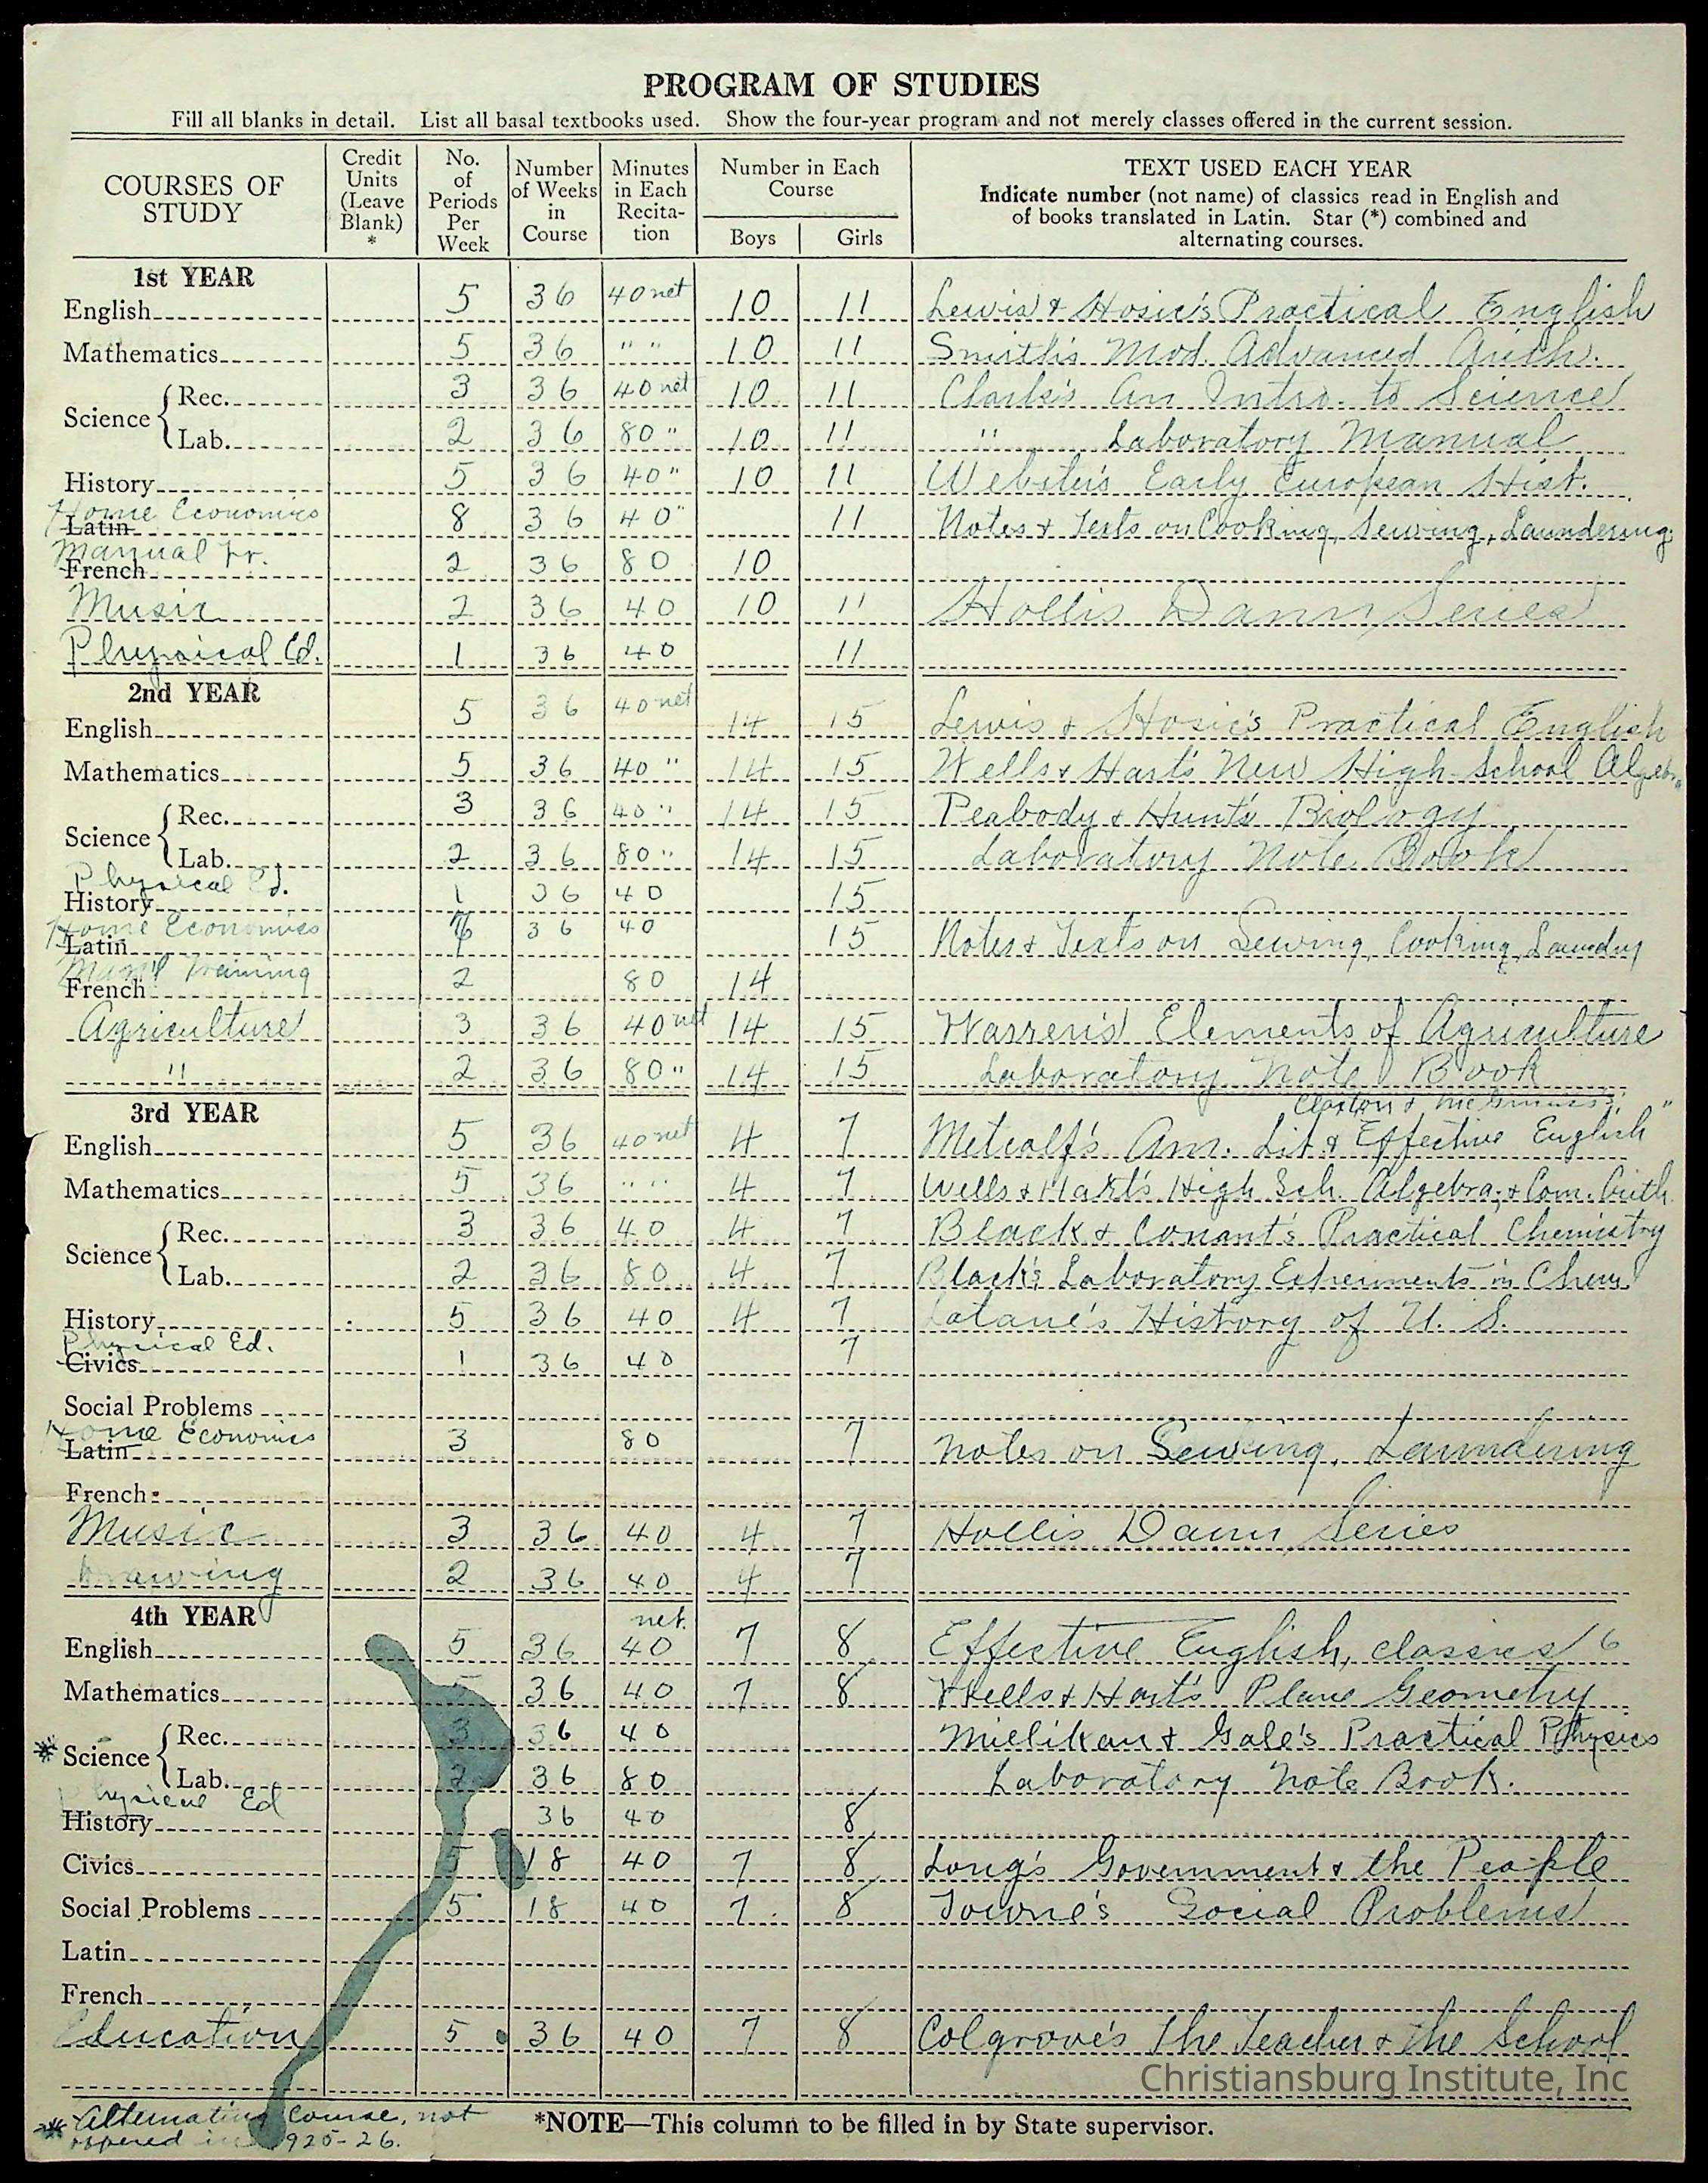 PROGRAM OF STUDIES
Fill all blanks in detail. List all basal textbooks used. Show the four-year program and not merely classes offered in the current session.
COURSES OF STUDY | Credit Units (Leave Blank) * | No. of Periods Per Week | Number of Weeks in Course | Minutes in Each Recita-tion | Number in Each Course Boys Girls | TEXT USED EACH YEAR Indicate number (not name) of classics read in English and of books translated in Latin. Star (*) combined and alternating courses.
1st YEAR
English 5 36 40 net 10 11 Lewis & Hosic's Practical English
Mathematics 5 36 " " 10 11 Smith's Mod. Advanced Arith.
Science Rec. 3 36 40 net 10 11 Clark's An Intro. to Science
Lab. 2 36 80 " 10 11 " Laboratory Manual
History 5 36 40 " 10 11 Webster's Early European Hist.
Home Economics
Latin 8 36 40 " 11 Notes & Texts on Cooking, Sewing, Laundering
Manual Tr.
French 2 36 80 10
Music 2 36 40 10 11 Hollis Dann Series
Physical Ed. 1 36 40 11
2nd YEAR
English 5 36 40 net 14 15 Lewis & Hosic's Practical English
Mathematics 5 36 40 " 14 15 Wells & Hart's New High School
Science Rec. 3 36 40 " 14 15 Peabody & Hunt's Biology
Lab. 2 36 80 " 14 15 Laboratory Note Book
Physical Ed.
History 1 36 40 15
Home Economics
Latin 36 40 15 Notes & Texts on Sewing, Cooking, Laundry
Man'l Training
French 2 80 14
Agriculture 3 36 40 net 14 15 Warren's Elements of Agriculture
" 2 36 80 " 14 15 Laboratory Note Book
3rd YEAR
English 5 36 40 net 4 7 Metcalf's Am. Lit. & Effective English "
Mathematics 5 36 " " 4 7 Wells & Hart's High Sch. Algebra; & Com. Arith.
Science Rec. 3 36 40 4 7 Black & Conant's Practical Chemistry
Lab. 2 36 80 4 7 Black's Laboratory Experiments in Chem.
History 5 36 40 4 7 Latane's History of U. S.
Physical Ed.
Civics 1 36 40 7
Social Problems
Home Economics
Latin 3 80 7 Notes on Sewing, Laundering
French
Music 3 36 40 4 7 Hollis Dann Series
Drawing 2 36 40 4 7
4th YEAR
English 5 36 net. 40 7 8 Effective English, classics 6
Mathematics 5 36 40 7 8 Wells & Hart's Plane Geometry
* Science Rec. 3 36 40 Millikan & Gale's Practical Physics
Lab. 2 36 80 Laboratory Note Book.
Physical Ed
History 36 40 8
Civics 5 18 40 7 8 Long's Government & the People
Social Problems 5 18 40 7 8 Towne's Social Problems
Latin
French
Education 5 36 40 7 8 Colgrove's The Teacher & the School
Christiansburg Institute, Inc
* Alternating Course, not
offered in 1925-26.
*NOTE—This column to be filled in by State supervisor.